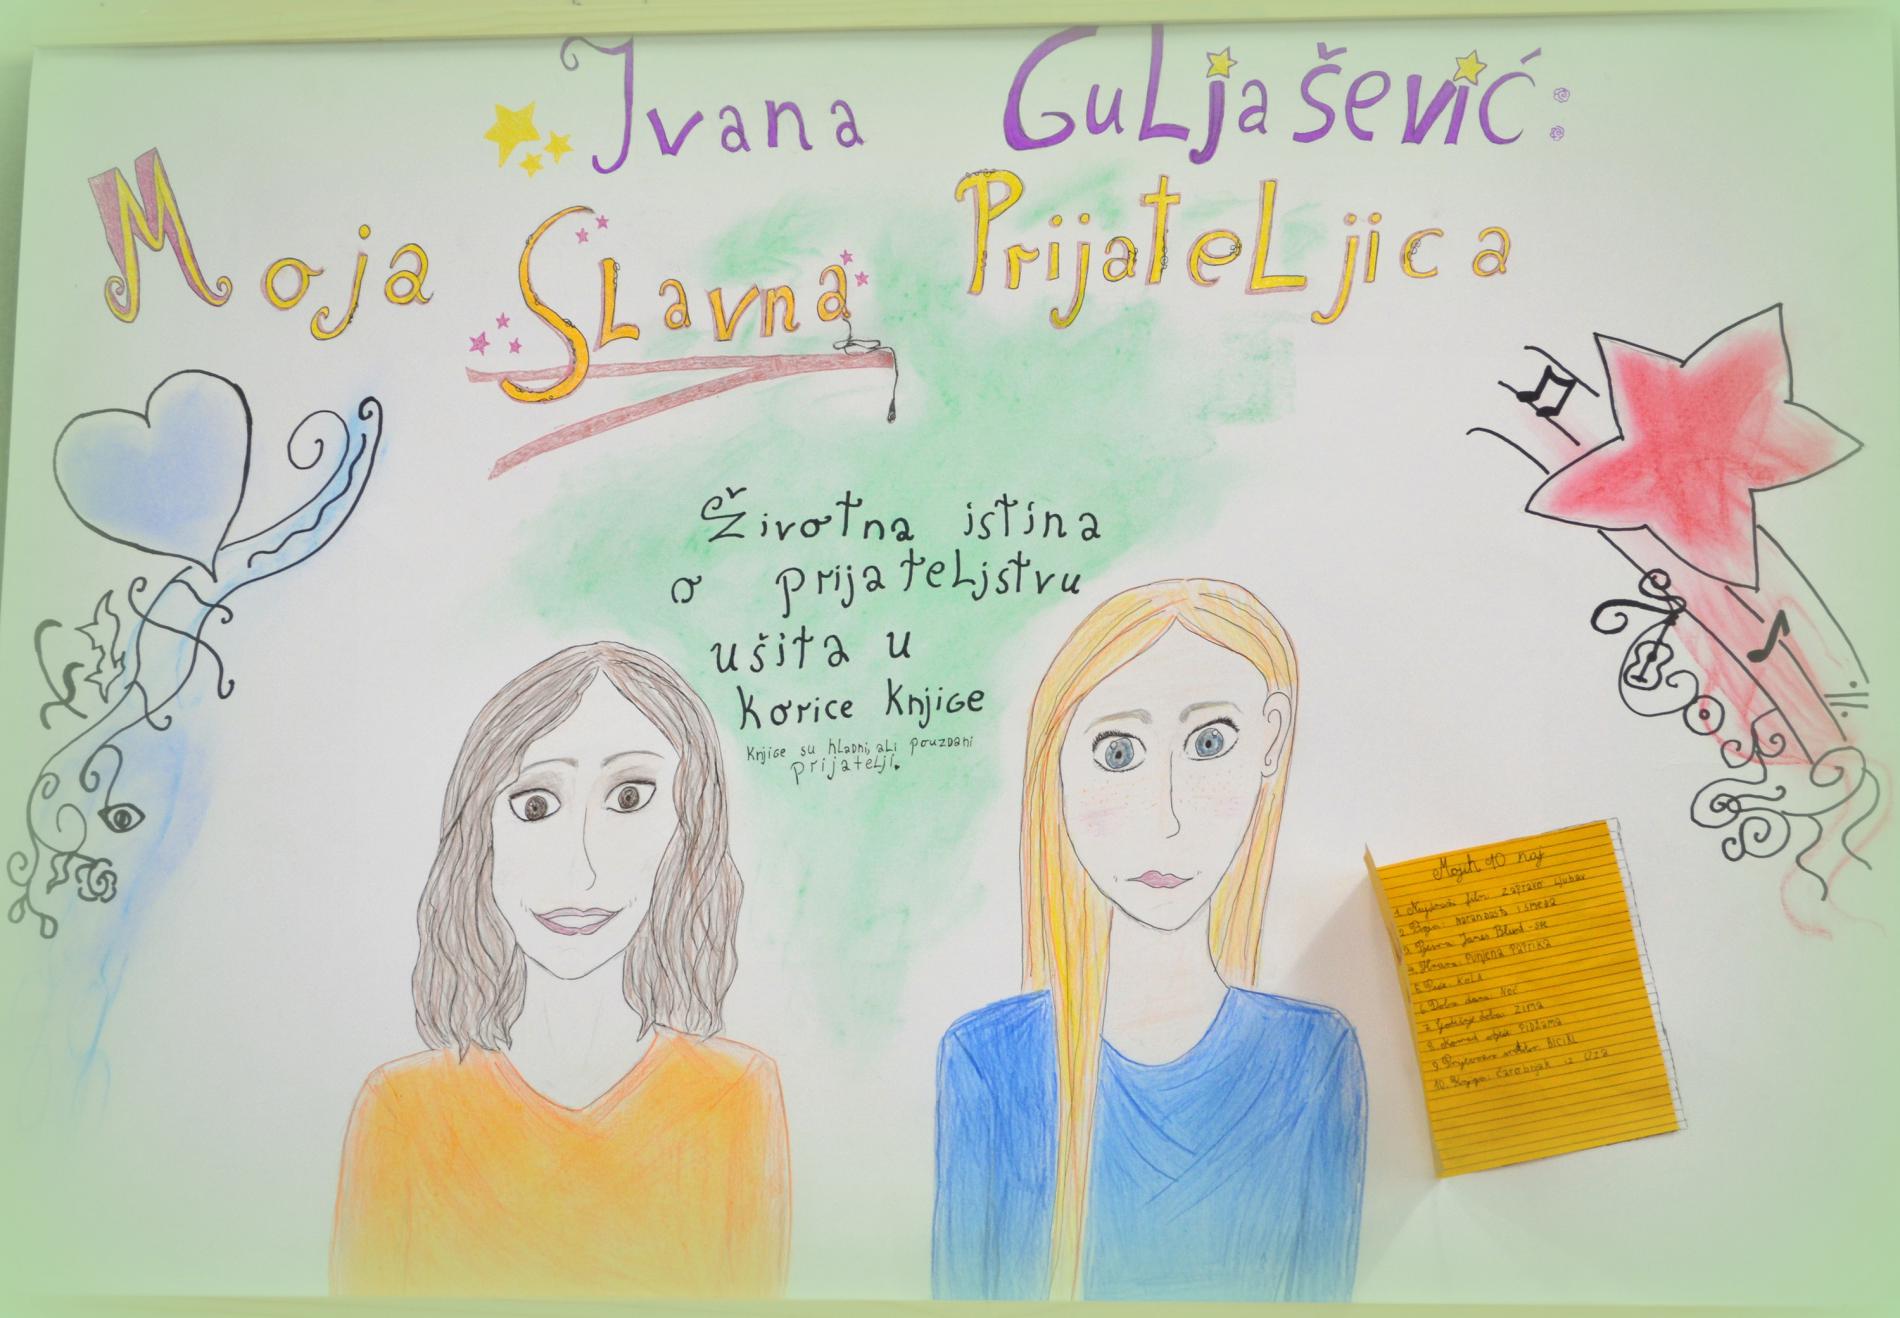 Ivana GuLjašević:
Moja SLavna PrijateLjica
Životna istina
o prijateLjstvu
ušita u
korice knjige
Knjige su hLadni, aLi pouzdani
prijateLji.
Mojih 10 naj
1. Najdraži film: Zapravo ljubav
2. Boja: narančasta i smeđa
3. Pjesma: James Blunt - sve
4. Hrana: Punjena paprika
5. Piće: KOLA
6. Doba dana: Noć
7. Godišnje doba: Zima
8. Komad odjeće: PIDŽAMA
9. Prijevozno sredstvo: BICIKL
10. Knjiga: Čarobnjak iz Oza